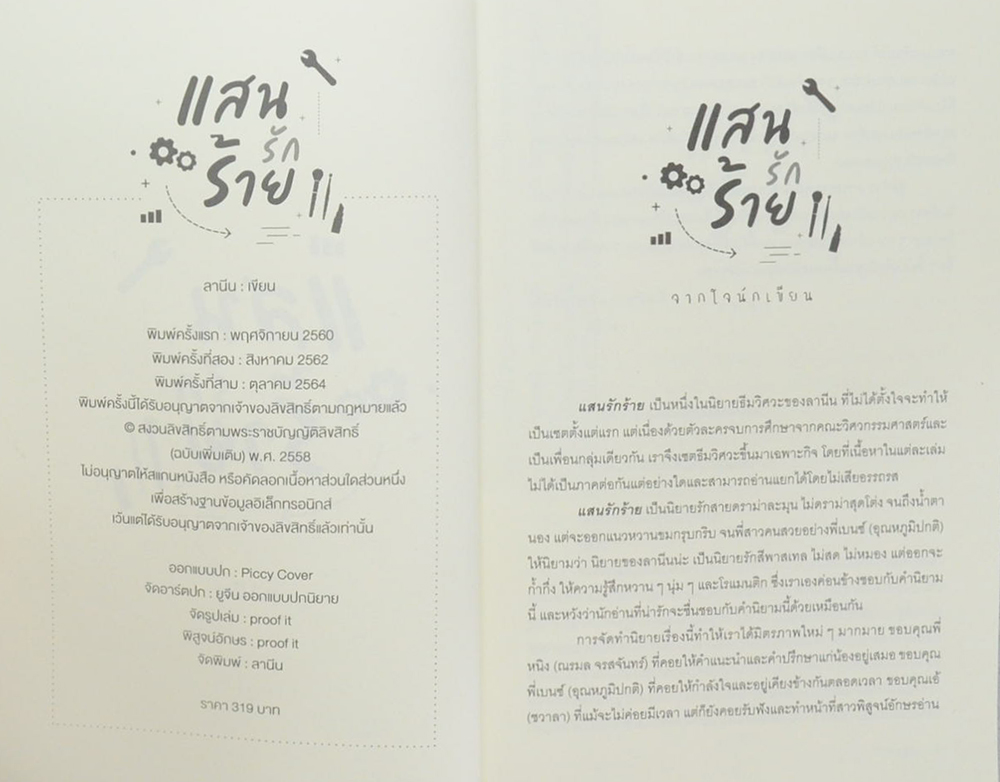 แสน
รัก
ร้าย
ลานีน : เขียน
พิมพ์ครั้งแรก : พฤศจิกายน 2560
พิมพ์ครั้งที่สอง : สิงหาคม 2562
พิมพ์ครั้งที่สาม : ตุลาคม 2564
พิมพ์ครั้งนี้ได้รับอนุญาตจากเจ้าของลิขสิทธิ์ตามกฎหมายแล้ว
© สงวนลิขสิทธิ์ตามพระราชบัญญัติลิขสิทธิ์
(ฉบับเพิ่มเติม) พ.ศ. 2558
ไม่อนุญาตให้สแกนหนังสือ หรือคัดลอกเนื้อหาส่วนใดส่วนหนึ่ง
เพื่อสร้างฐานข้อมูลอิเล็กทรอนิกส์
เว้นแต่ได้รับอนุญาตจากเจ้าของลิขสิทธิ์แล้วเท่านั้น
ออกแบบปก : Piccy Cover
จัดอาร์ตปก : ยูจีน ออกแบบปกนิยาย
จัดรูปเล่ม : proof it
พิสูจน์อักษร : proof it
จัดพิมพ์ : ลานีน
ราคา 319 บาท
แสน
รัก
ร้าย
จากใจนักเขียน
แสนรักร้าย เป็นหนึ่งในนิยายธีมวิศวะของลานีน ที่ไม่ได้ตั้งใจจะทำให้
เป็นเซตตั้งแต่แรก แต่เนื่องด้วยตัวละครจบการศึกษาจากคณะวิศวกรรมศาสตร์และ
เป็นเพื่อนกลุ่มเดียวกัน เราจึงเซตธีมวิศวะขึ้นมาเฉพาะกิจ โดยที่เนื้อหาในแต่ละเล่ม
ไม่ได้เป็นภาคต่อกันแต่อย่างใดและสามารถอ่านแยกได้โดยไม่เสียอรรถรส
แสนรักร้าย เป็นนิยายรักสายดราม่าละมุน ไม่ดราม่าสุดโต่ง จนถึงน้ำตา
นอง แต่จะออกแนวหวานขมกรุบกริบ จนพี่สาวคนสวยอย่างพี่เบนซ์ (อุณหภูมิปกติ)
ให้นิยามว่า นิยายของลานีนน่ะ เป็นนิยายรักสีพาสเทล ไม่สด ไม่หมอง แต่ออกจะ
ก้ำกึ่ง ให้ความรู้สึกหวาน ๆ นุ่ม ๆ และโรแมนติก ซึ่งเราเองค่อนข้างชอบกับคำนิยาม
นี้ และหวังว่านักอ่านที่น่ารักจะชื่นชอบกับคำนิยามนี้ด้วยเหมือนกัน
การจัดทำนิยายเรื่องนี้ทำให้เราได้มิตรภาพใหม่ ๆ มากมาย ขอบคุณพี่
หนิง (ณรมล จรสจันทร์) ที่คอยให้คำแนะนำและคำปรึกษาแก่น้องอยู่เสมอ ขอบคุณ
พี่เบนซ์ (อุณหภูมิปกติ) ที่คอยให้กำลังใจและอยู่เคียงข้างกันตลอดเวลา ขอบคุณเอ้
(ชวาลา) ที่แม้จะไม่ค่อยมีเวลา แต่ก็ยังคอยรับฟังและทำหน้าที่สาวพิสูจน์อักษรอ่าน